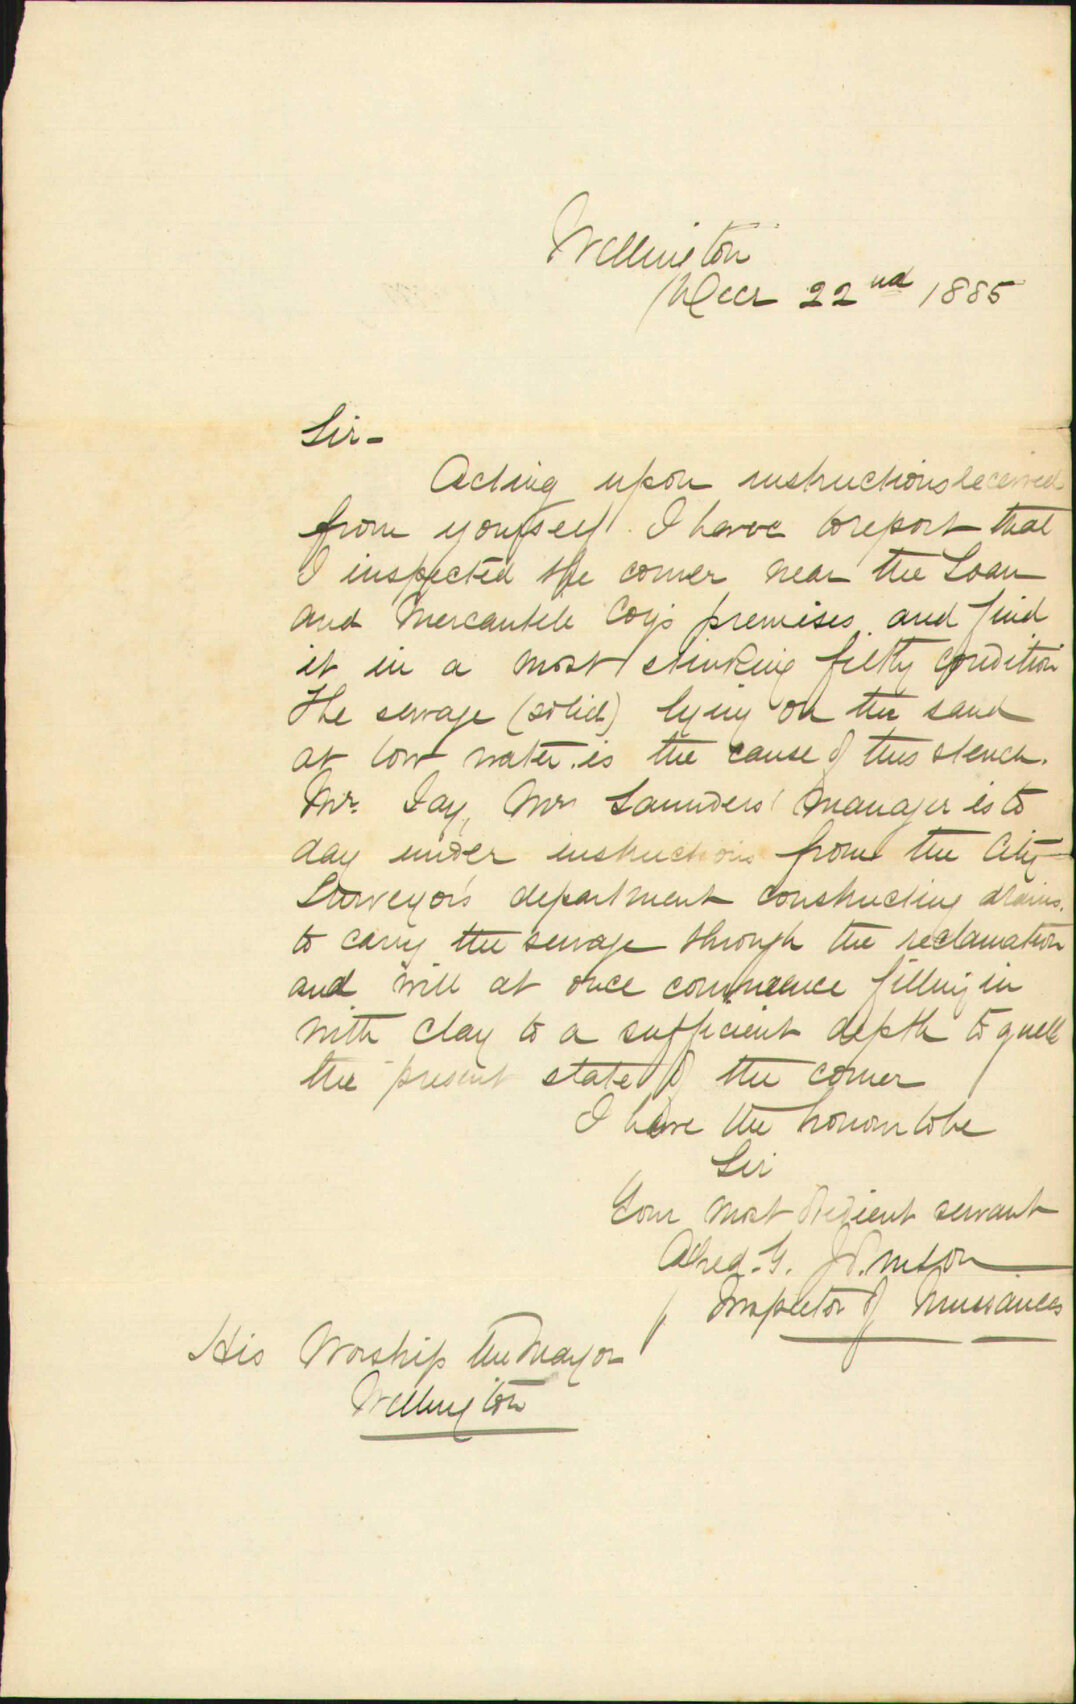 Wellington
Decr 22nd 1885
Sir-
Acting upon instructions received
from yourself. I have to report that
I inspected the corner near the Loan
and Mercantile Coy's premises and find
it in a most stinking filthy condition
The sewage (solid) lying on the sand
at low water is the cause of this stench.
Mr. Jay, Mr Saunders' manager is to
day under instructions from the City
Surveyor's department constructing drains.
to carry the sewage through the reclamation
and will at once commence filling in
with clay to a sufficient depth to quell
the present state of the corner
I have the honour to be
Sir
Your most obedient servant
Alfred. G. Johnson
Inspector of Nuisances
His Worship the Mayor
Wellington